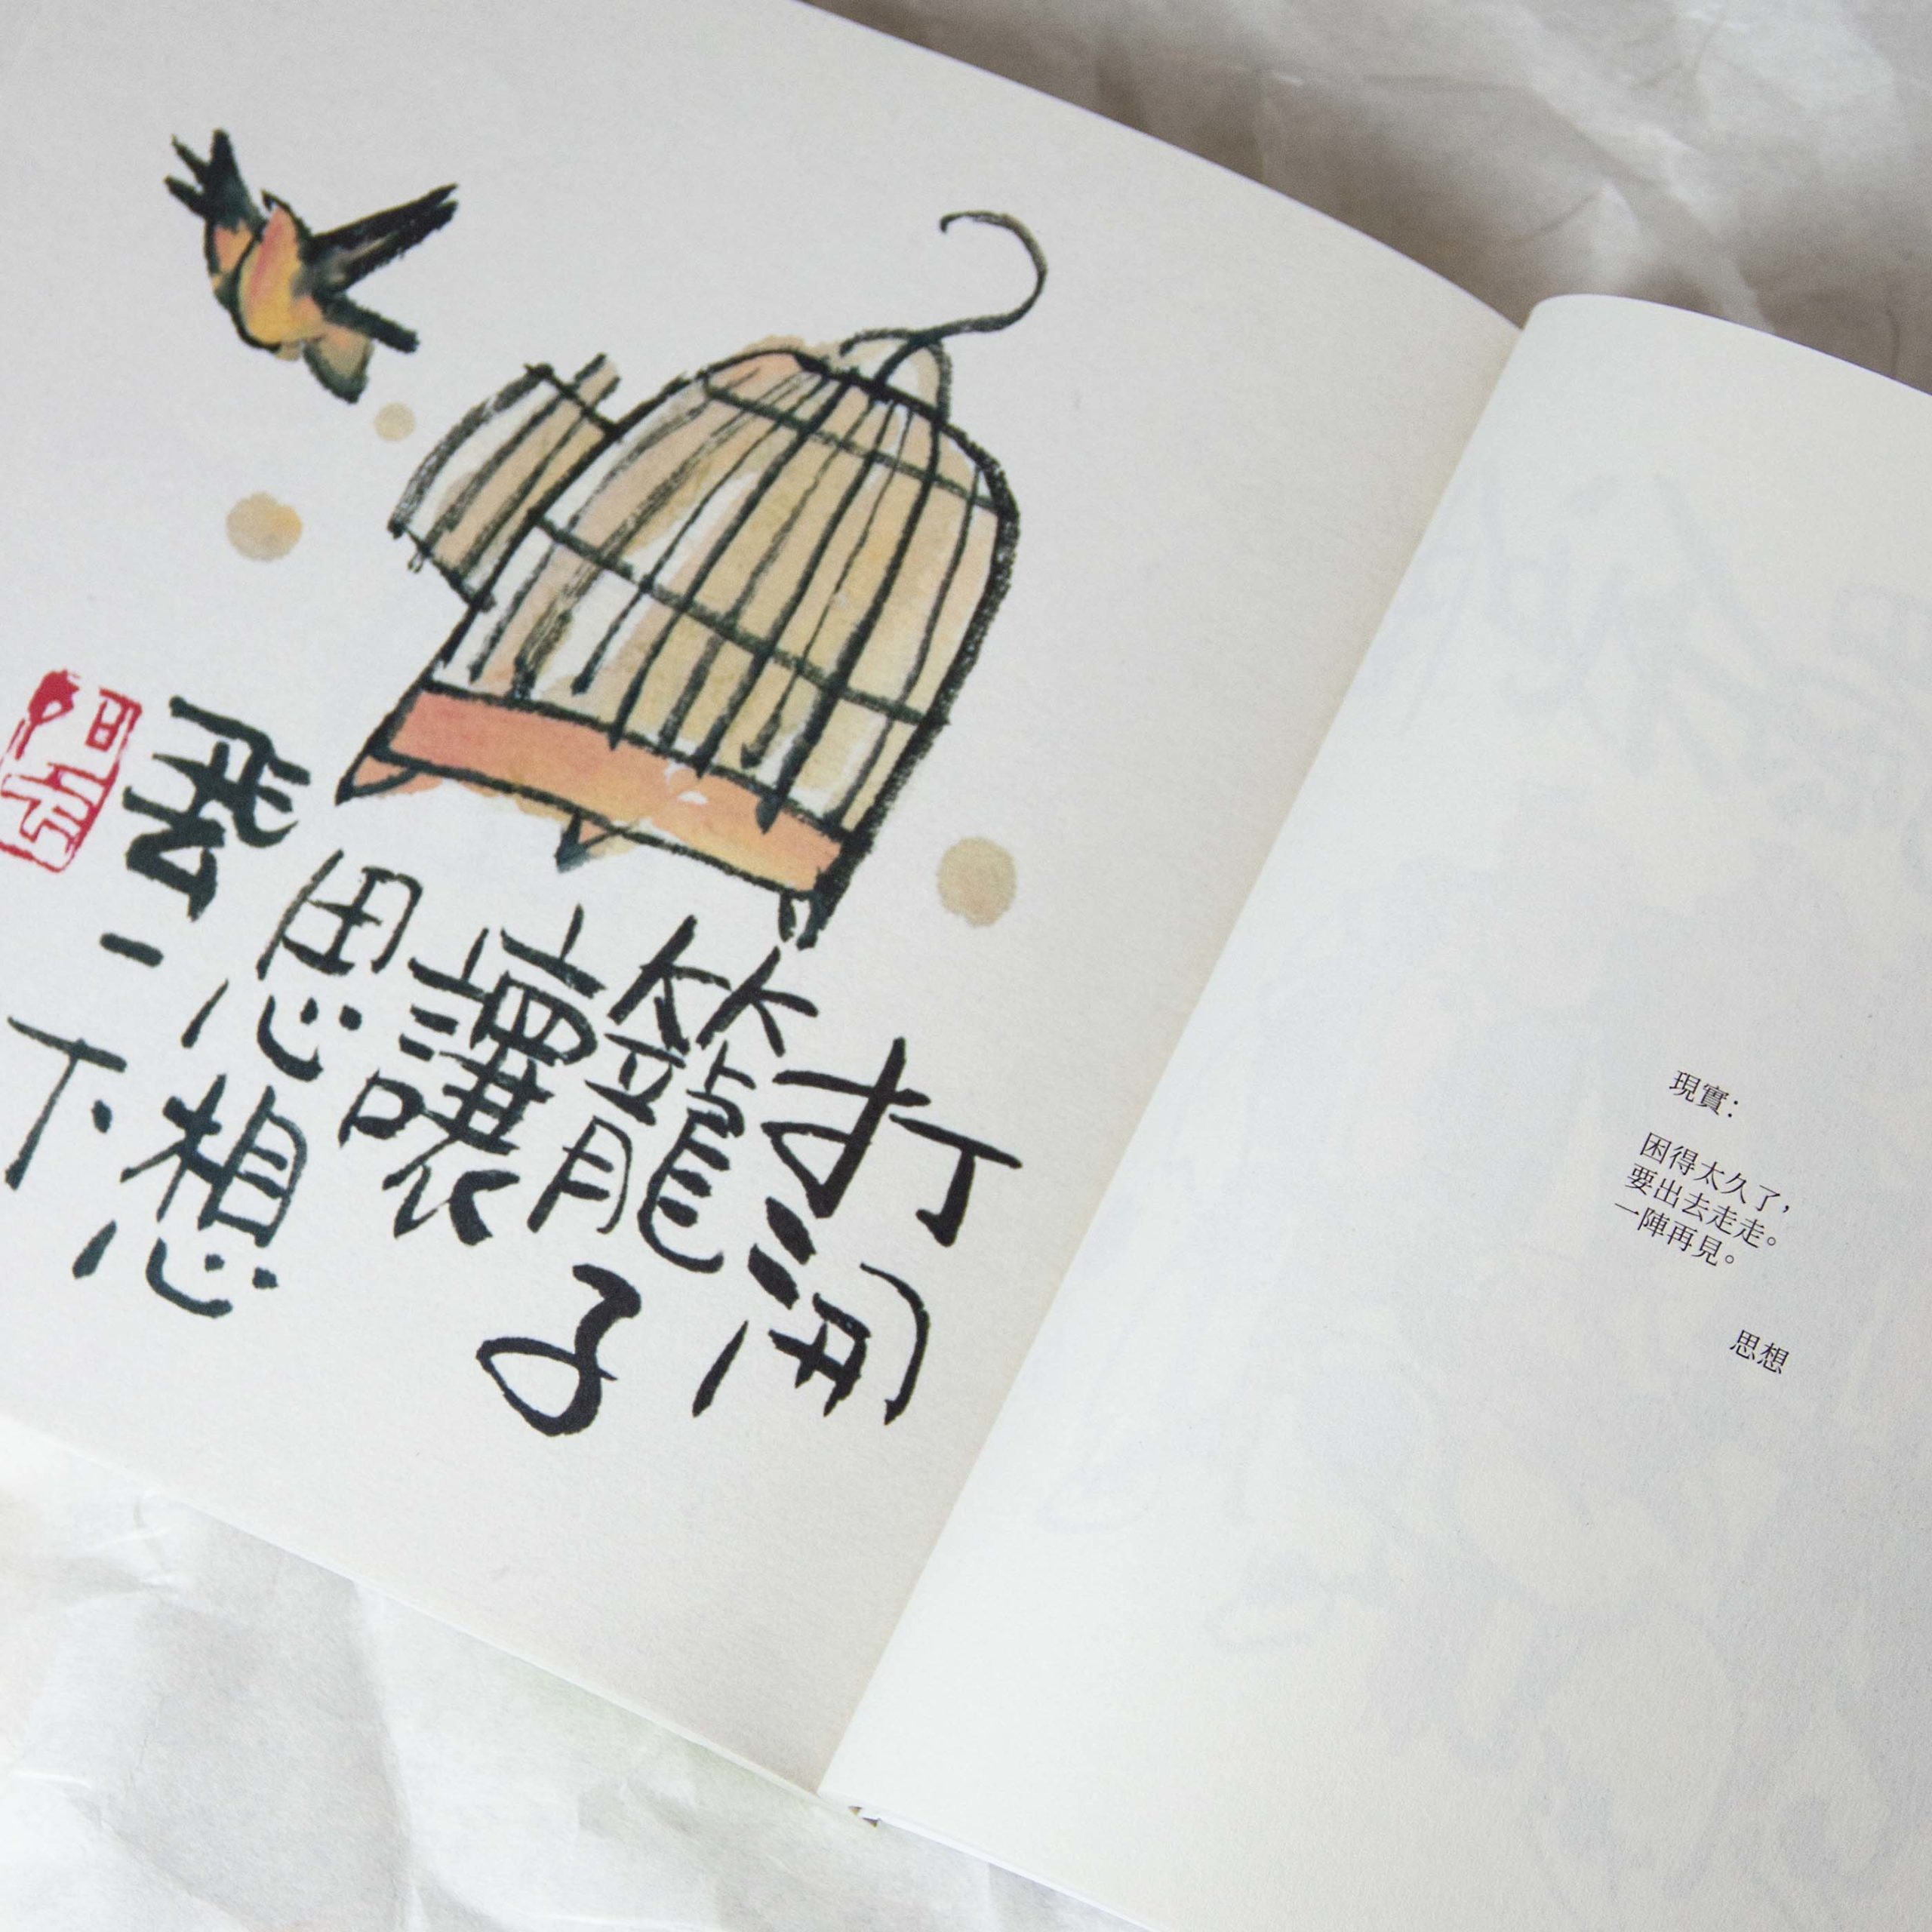 打開
籠子
讓
思想
飛一下
現實：
困得太久了，
要出去走走。
一陣再見。
思想